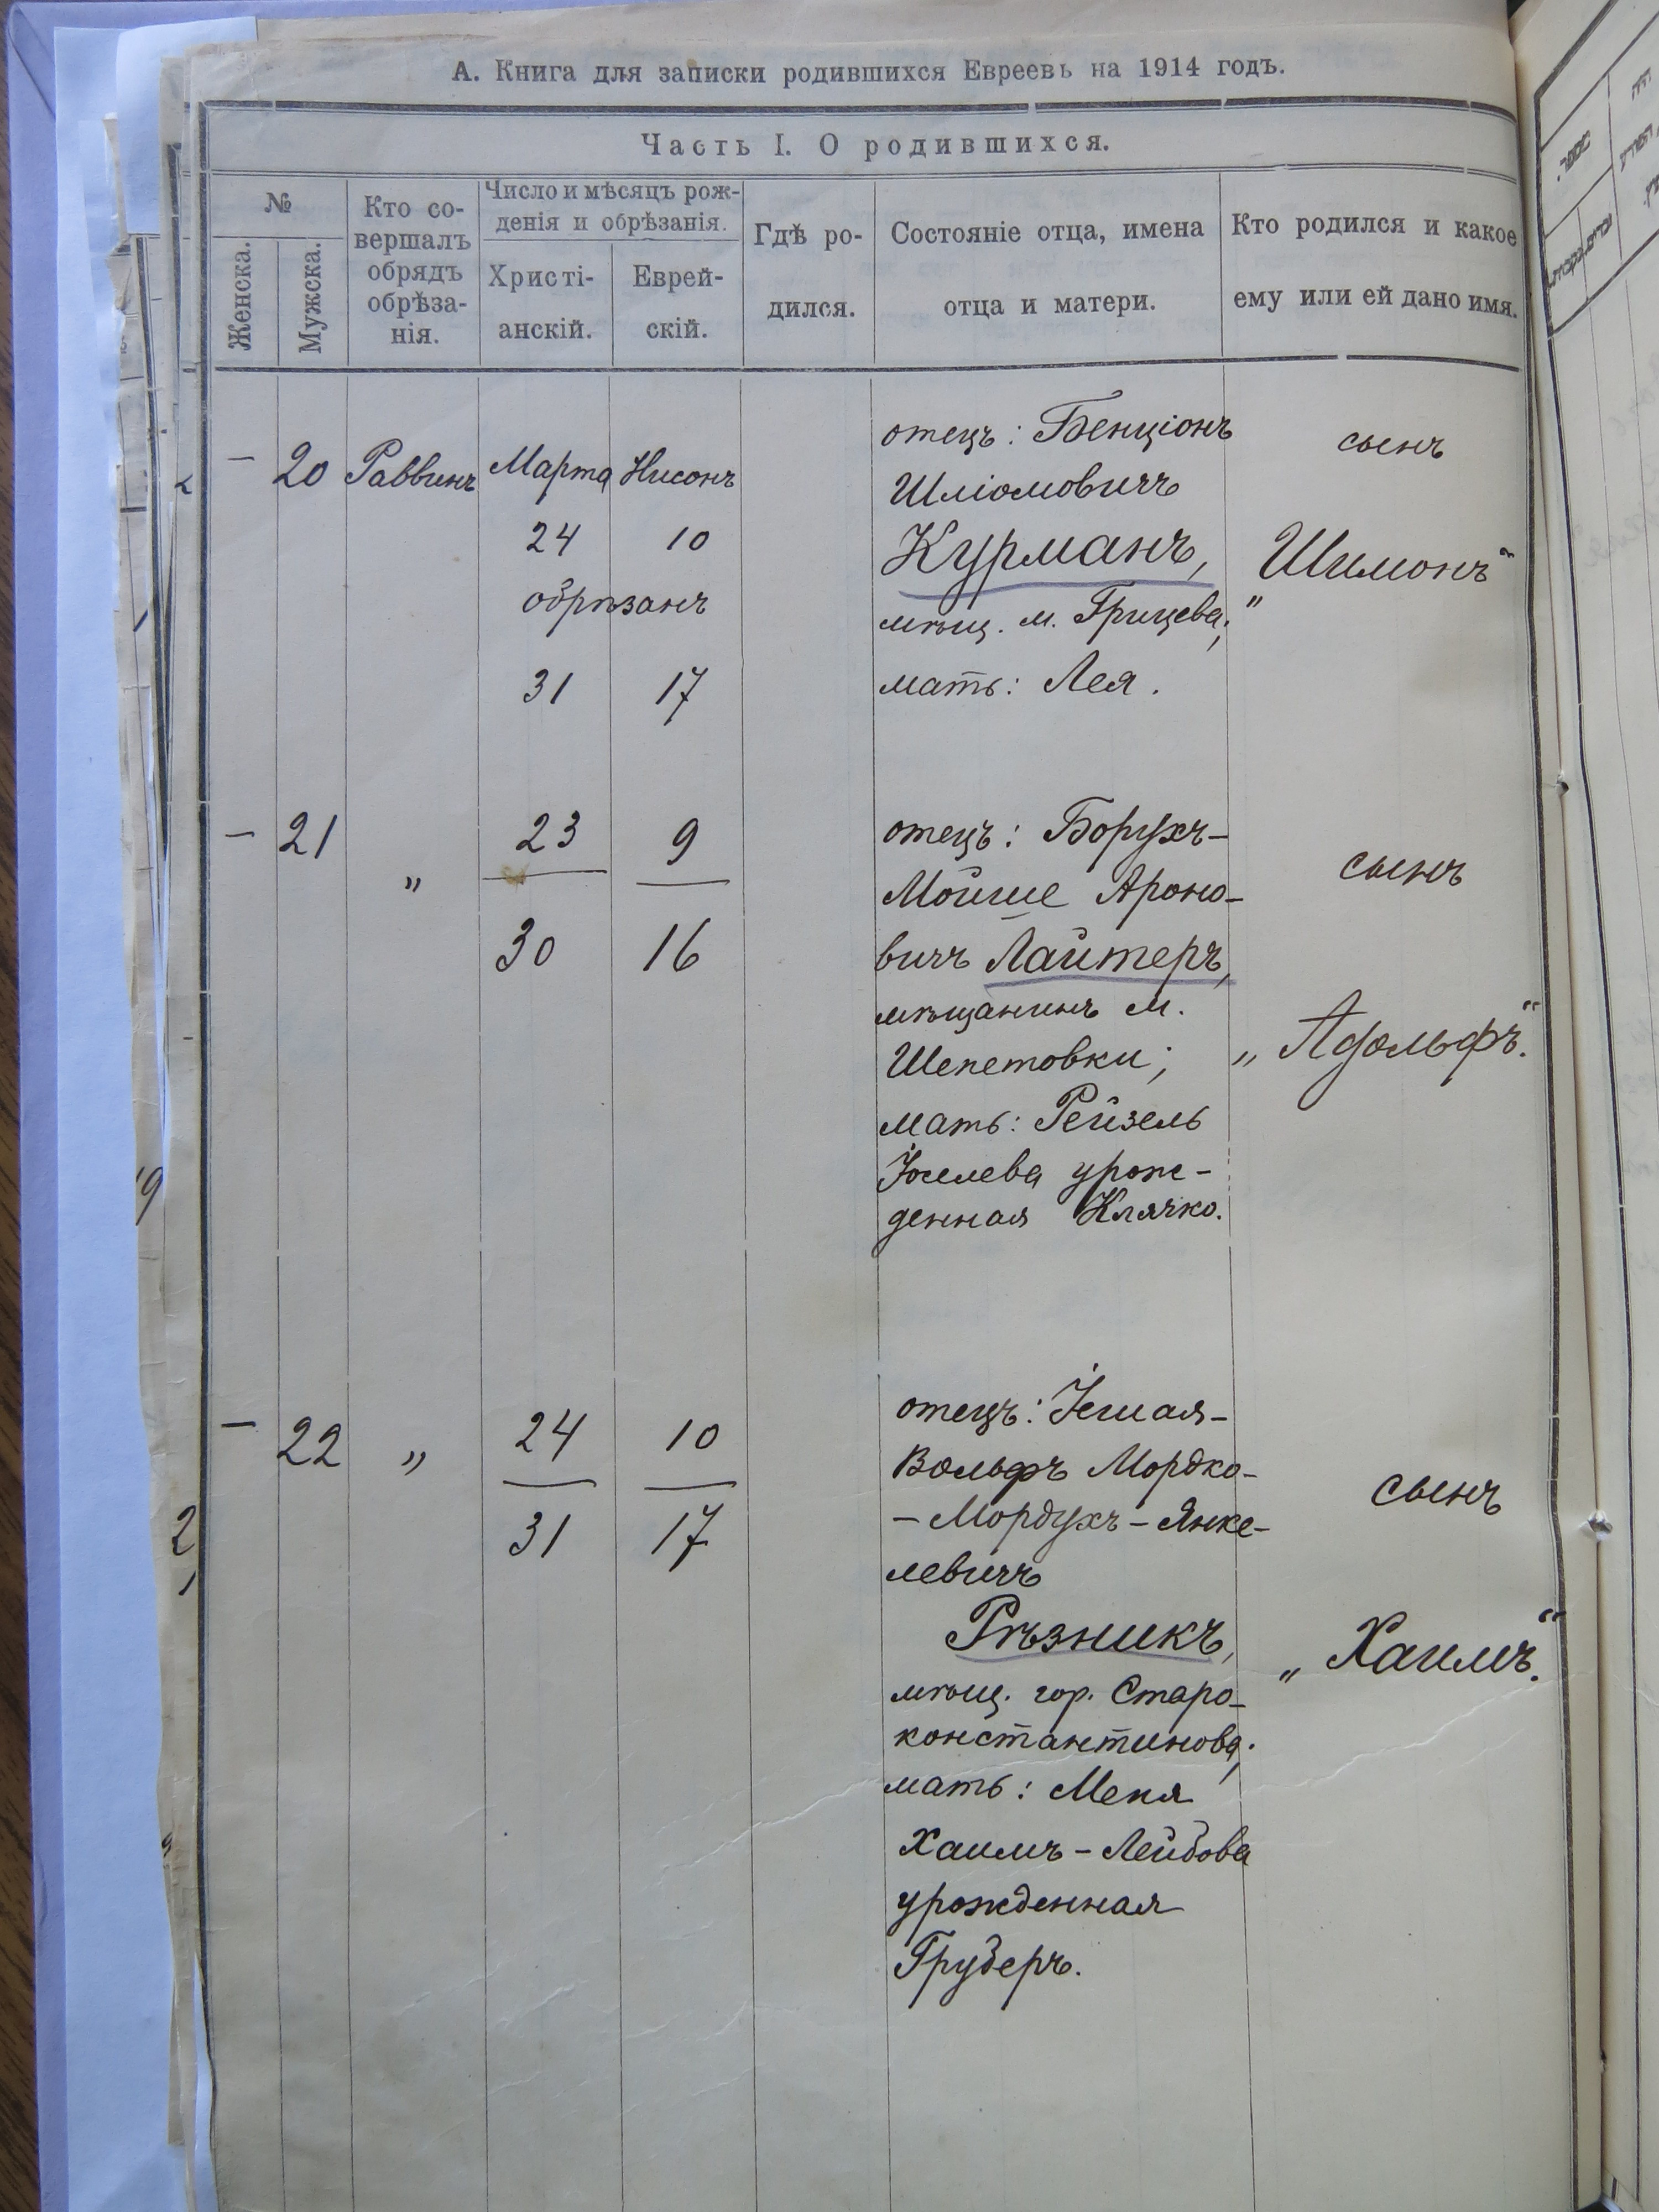 А. Книга для записки родившихся Евреевъ на 1914 годъ.
Часть I. О родившихся.
№
Женска.
Мужска.
Кто со-
вершалъ
обрядъ
обрѣза-
нія.
Число и мѣсяцъ рож-
денія и обрѣзанія.
Христі-
анскій.
Еврей-
скій.
Гдѣ ро-
дился.
Состояніе отца, имена
отца и матери.
Кто родился и какое
ему или ей дано имя.
— 20 Раввинъ Марта Нисонъ
24 10
обрѣзанъ
31 17
отецъ: Бенціонъ
Шліомовичъ
Курманъ,
мѣщ. м. Грицева;
мать: Лея.
сынъ
„Шимонъ“
— 21 „ 23 9
30 16
отецъ: Борухъ-
Мойше Ароно-
вичъ Лайтеръ,
мѣщанинъ м.
Шепетовки;
мать: Рейзель
Іоселева урож-
денная Клячко.
сынъ
„Адольфъ“.
— 22 „ 24 10
31 17
отецъ: Іешая-
Вольфъ Мордко-
-Мордухъ-Янке-
левичъ
Рѣзникъ,
мѣщ. гор. Старо-
константинова;
мать: Меня
Хаимъ-Лейбова
урожденная
Груберъ.
сынъ
„Хаимъ“.